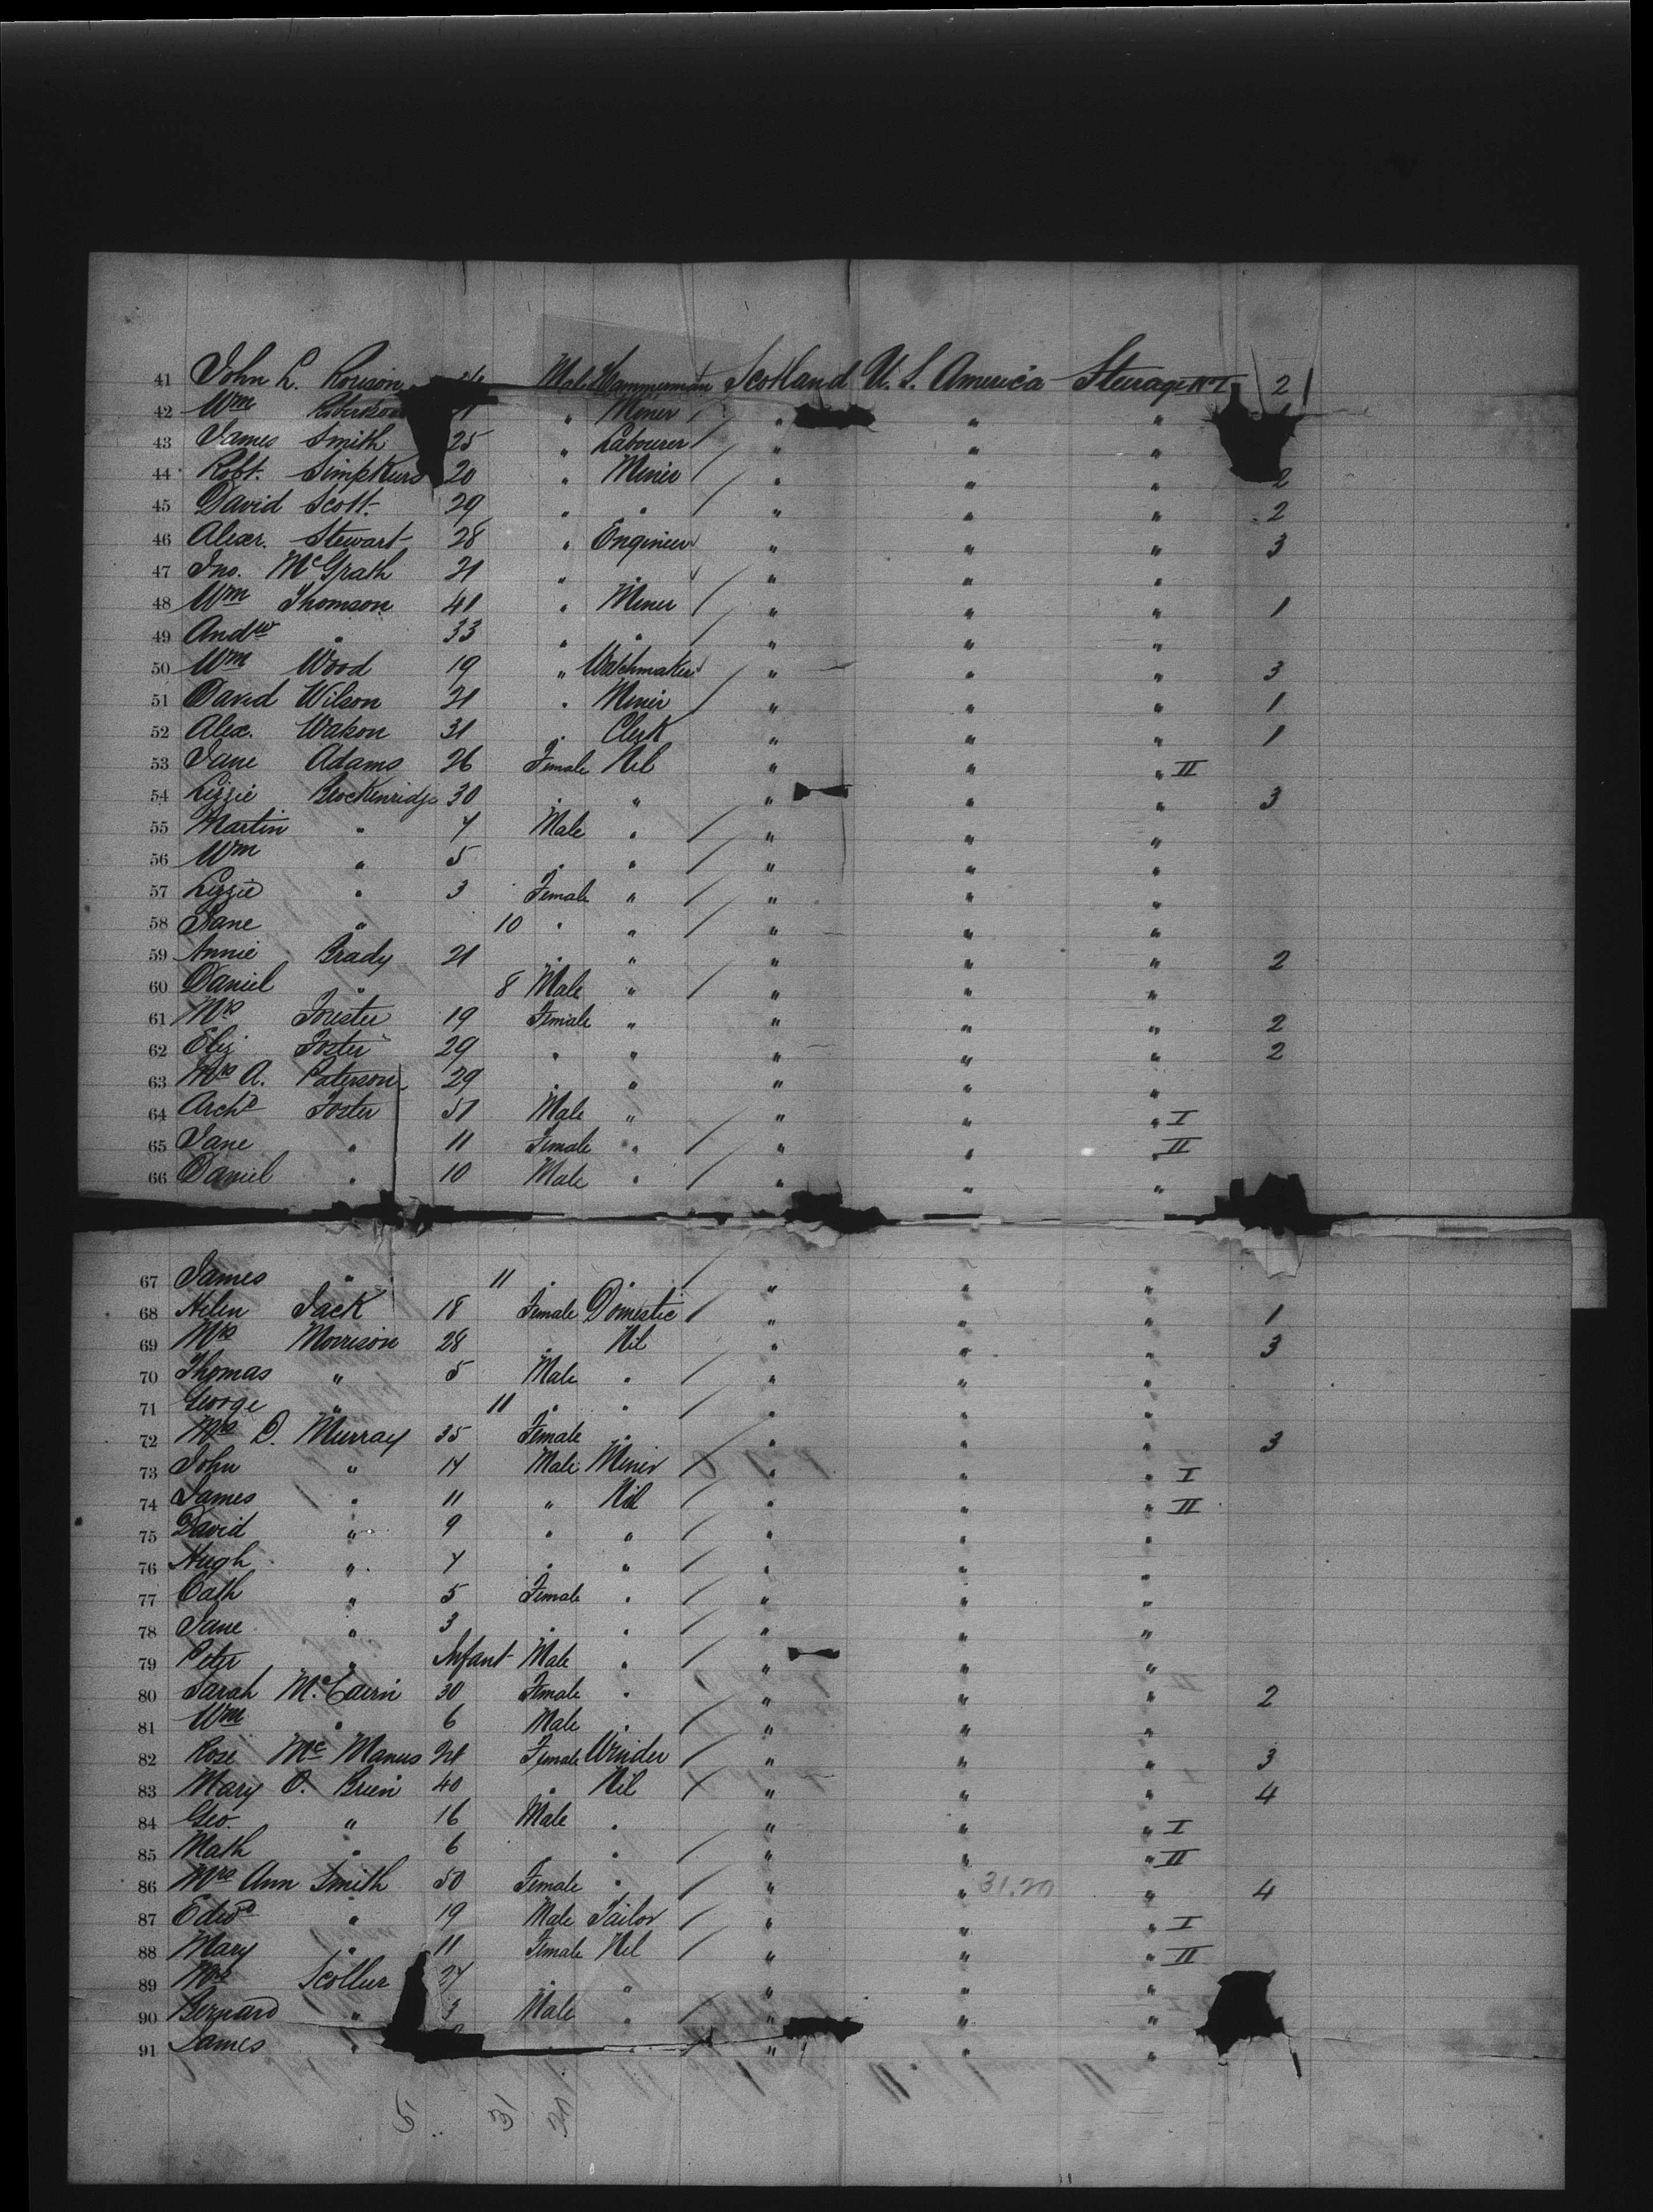 41 John L. Rowson Male Hammerman Scotland U. S. America Steerage No I 2
42 Wm Robertson " Miner " " "
43 James Smith 25 " Labourer " " "
44 Robt. 20 " Miner " " " 2
45 David Scott 29 " " " " " 2
46 Alexr. Stewart 28 " Engineer " " " 3
47 Jno. McGrath 21 " " " " "
48 Wm Thomson 41 " Miner " " " 1
49 Andw " 33 " " " " "
50 Wm Wood 19 " Watchmaker " " " 3
51 David Wilson 21 " Miner " " " 1
52 Alex. Watson 31 " Clerk " " " 1
53 Jane Adams 26 Female Nil " " " II
54 Lizzie Brockenridge 30 " " " " " 3
55 Martin " 7 Male " " " "
56 Wm " 5 " " " " "
57 Lizzie " 3 Female " " " "
58 Jane " 10 " " " " "
59 Annie Brady 21 " " " " " 2
60 Daniel " 8 Male " " " "
61 Mrs Forester 19 Female " " " " 2
62 Eliz Foster 29 " " " " " 2
63 Mrs A. Paterson 29 " " " " "
64 Archd Foster 51 Male " " " " I
65 Jane " 11 Female " " " " II
66 Daniel " 10 Male " " " "
67 James " 11 " " " " "
68 Helen Jack 18 Female Domestic " " " 1
69 Mrs Morrison 28 " Nil " " " 3
70 Thomas " 5 Male " " " "
71 George " 11 " " " " "
72 Mrs D. Murray 35 Female " " " " 3
73 John " 14 Male Miner " " " I
74 James " 11 " Nil " " " II
75 David " 9 " " " " "
76 Hugh " 7 " " " " "
77 Cath " 5 Female " " " "
78 Jane " 3 " " " " "
79 Peter " Infant Male " " " "
80 Sarah McCairn 30 Female " " " " 2
81 Wm " 6 Male " " " "
82 Rose McManus Female Winder " " " 3
83 Mary O. Brien 40 " Nil " " " 4
84 Geo. " 16 Male " " " " I
85 Math " 6 " " " " " II
86 Mrs Ann Smith 50 Female " " " 31.20 " 4
87 Edwd " 19 Male Tailor " " " I
88 Mary " 11 Female Nil " " " II
89 Mrs Scollur 27 " " " " "
90 Bernard " 3 Male " " " "
91 James " " " " " "
31